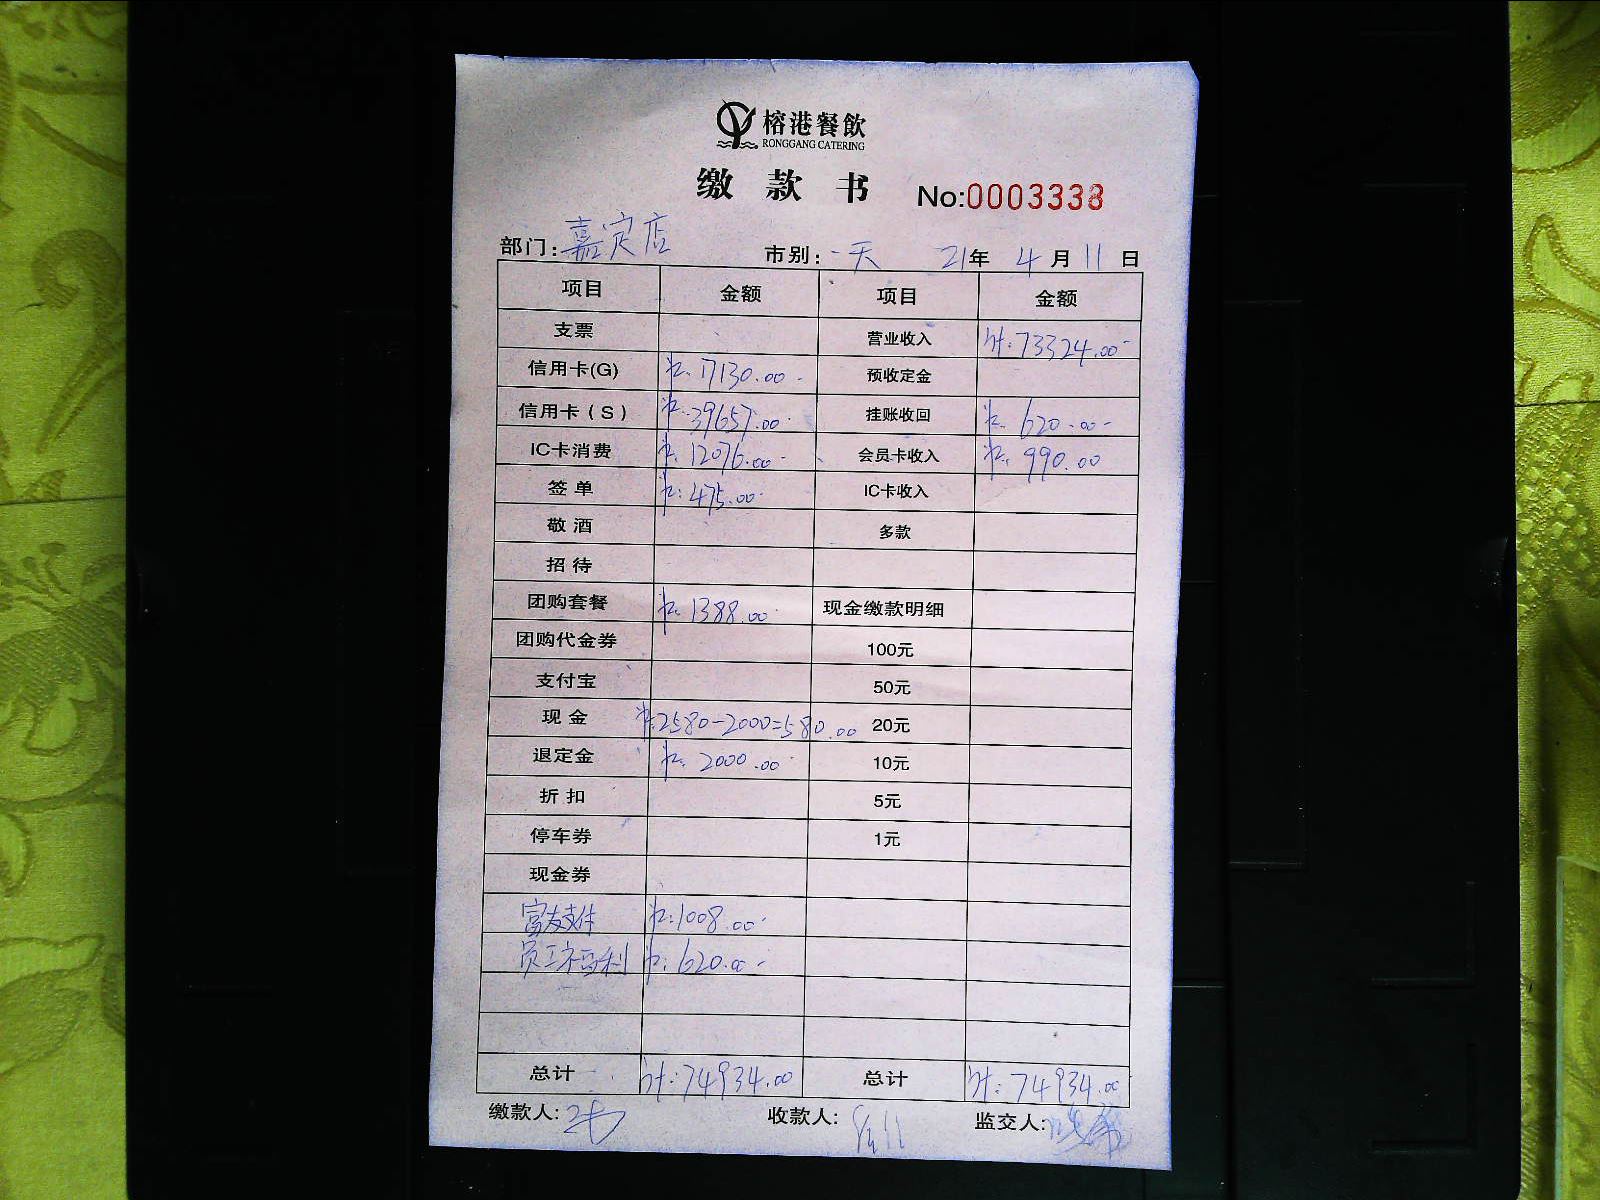 榕港餐飲
RONGGANG CATERING
缴款书 No:0003338
部门:嘉定店 市别:一天 21年 4月 11日
项目 金额 项目 金额
支票 营业收入 计:73324.00
信用卡(G) 17130.00 预收定金
信用卡(S) 39657.00 挂账收回 620.00
IC卡消费 12076.00 会员卡收入 990.00
签单 475.00 IC卡收入
敬酒 多款
招待
团购套餐 1388.00 现金缴款明细
团购代金券 100元
支付宝 50元
现金 2580-2000=580.00 20元
退定金 2000.00 10元
折扣 5元
停车券 1元
现金券
富友支付 1008.00
员工福利 620.00
总计 计:74934.00 总计 计:74934.00
缴款人: 收款人: 监交人: